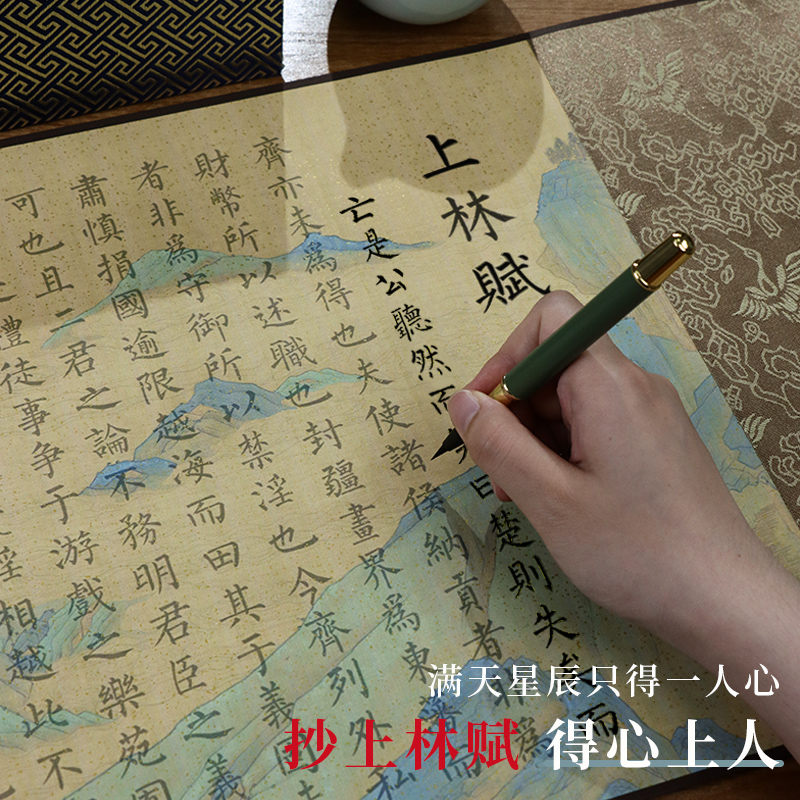 上林賦
亡是公聽然而曰楚則失矣而
齊亦未爲得也夫使諸侯納貢者非爲
財幣所以述職也封疆畫界爲東藩而
者非爲守御所以禁淫也今齊列外私
肅慎捐國逾限越海而田其于義固
可也且二君之論不務明君臣之義
禮徒事爭于游戲之樂苑囿
淫相越此不
满天星辰只得一人心
抄上林赋 得心上人